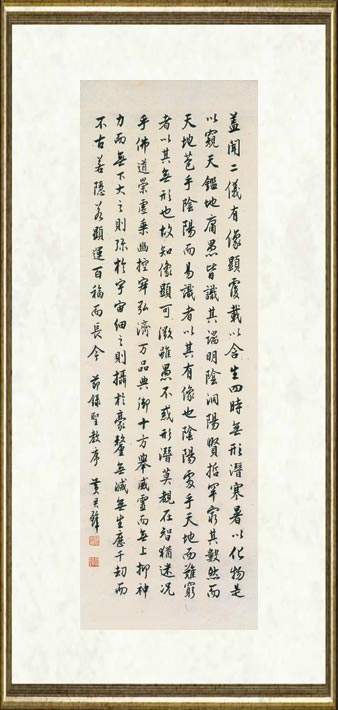 蓋聞二儀有像顯覆載以含生四時無形潛寒暑以化物是
以窺天鑑地庸愚皆識其端明陰洞陽賢哲罕窮其數然而
天地苞乎陰陽而易識者以其有像也陰陽處乎天地而難窮
者以其無形也故知像顯可徵雖愚不惑形潛莫覩在智猶迷況
乎佛道崇虛乘幽控寂弘濟万品典御十方舉威靈而無上抑神
力而無下大之則弥於宇宙細之則攝於豪釐無滅無生歷千劫而
不古若隱若顯運百福而長今 節錄聖教序 黃君